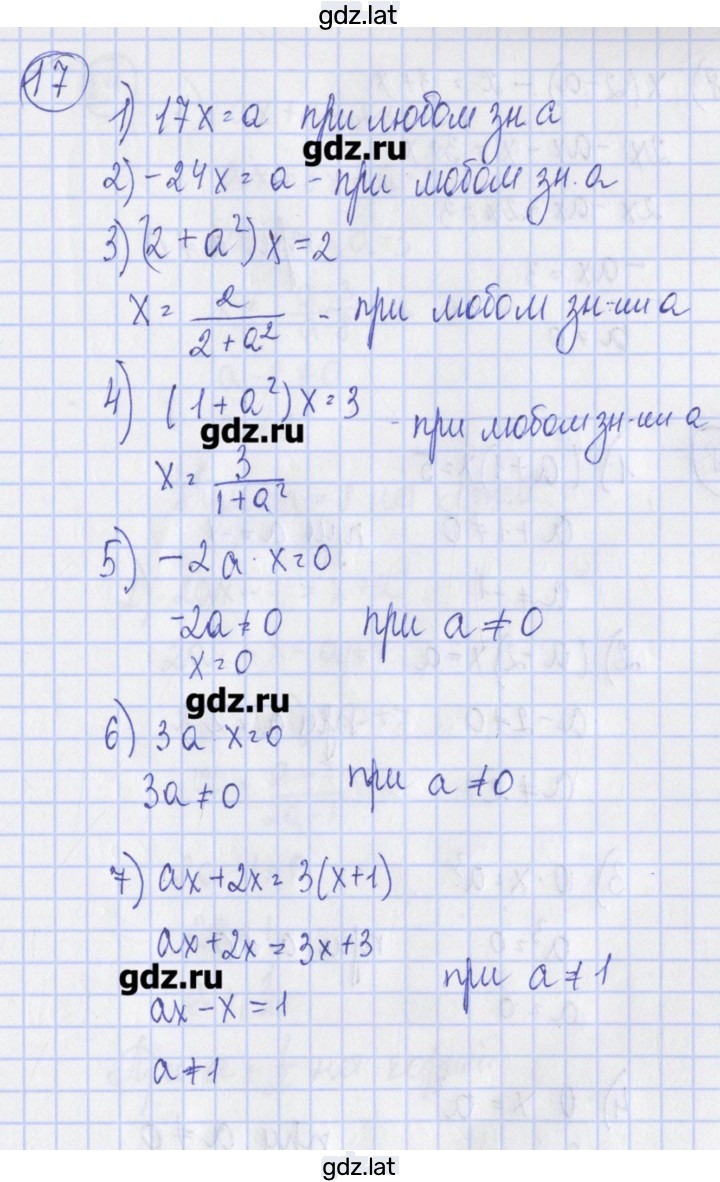 gdz.lat
17
1) 17x = a при любом зн a
gdz.ru
2) -24x = a - при любом зн. a
3) (2 + a²) x = 2
x = 2 / (2 + a²) - при любом зн-ии a
4) (1 + a²) x = 3 - при любом зн-ии a
gdz.ru
x = 3 / (1 + a²)
5) -2a · x = 0
-2a ≠ 0 при a ≠ 0
x = 0
gdz.ru
6) 3a · x = 0
3a ≠ 0 при a ≠ 0
7) ax + 2x = 3(x+1)
ax + 2x = 3x + 3
gdz.ru при a ≠ 1
ax - x = 1
a ≠ 1
gdz.lat